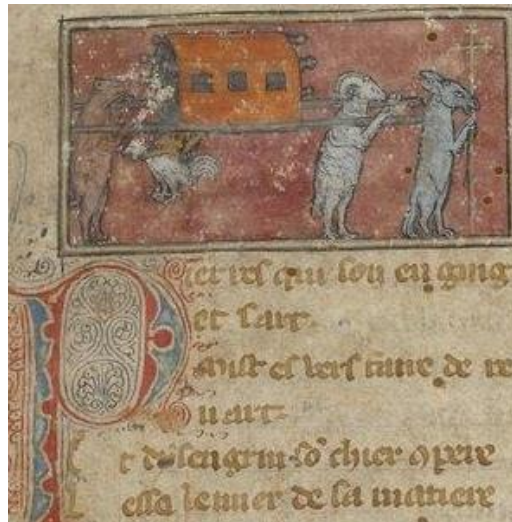 Pierres qui son enging
et sart.
Mist es vers faire de re
nart
Et disengrin sõ chier ꝯpere
Lessa le mier de sa matiere